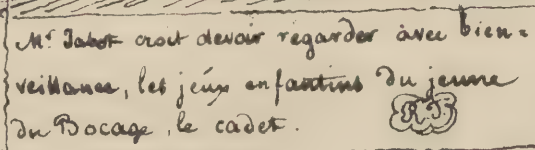 Mr Jabot croit devoir regarder avec bien=
veillance, les jeux enfantins du jeune
du Bocage, le cadet.
RT